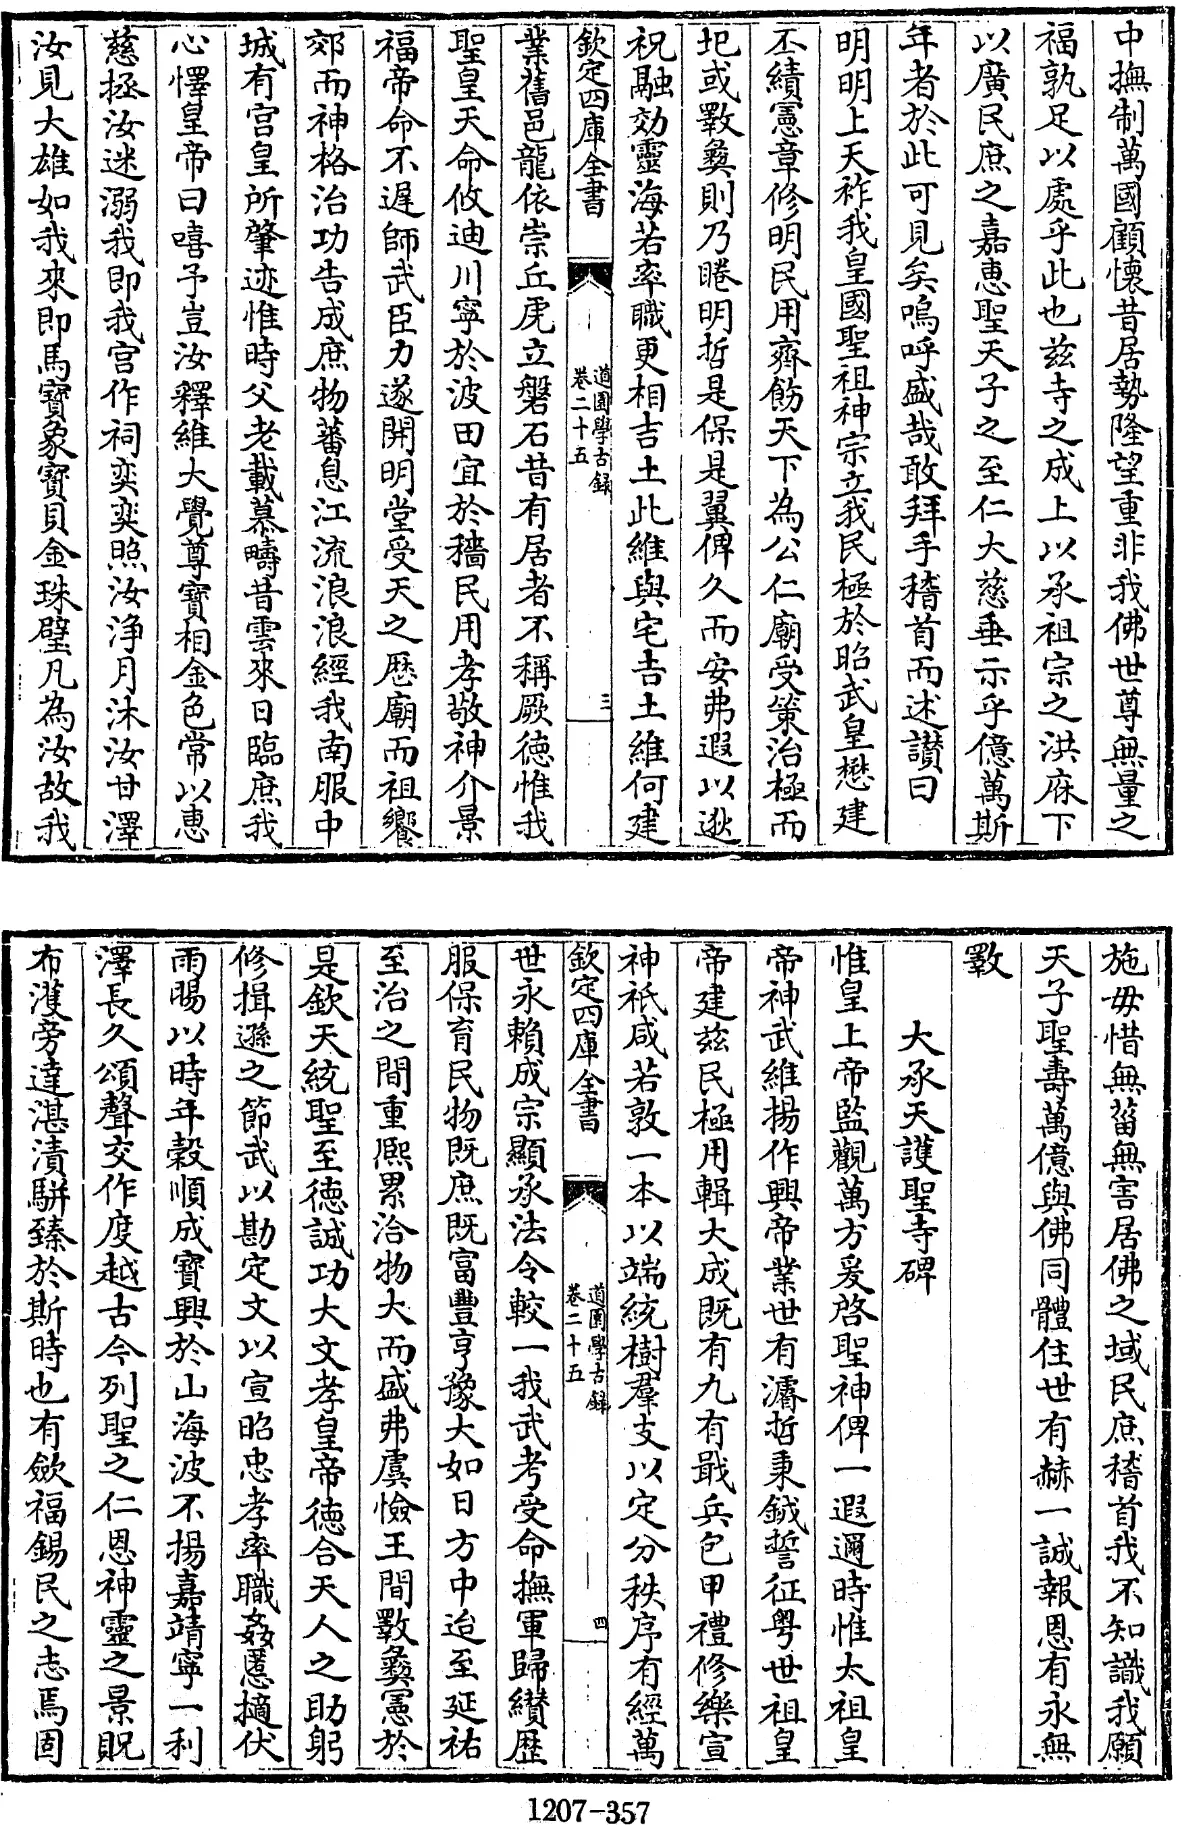 中撫制萬國顧懷昔居勢隆望重非我佛世尊無量之
福孰足以處乎此也兹寺之成上以承祖宗之洪庥下
以廣民庶之嘉惠聖天子之至仁大慈垂示乎億萬斯
年者於此可見矣嗚呼盛哉敢拜手稽首而述讃曰
明明上天祚我皇國聖祖神宗立我民極於昭武皇懋建
丕績憲章修明民用齊飭天下為公仁廟受策治極而
圯或斁彝則乃睠明哲是保是翼俾久而安弗遐以逖
祝融効靈海若率職更相吉土此維與宅吉土維何建
欽定四庫全書
道園學古録
卷二十五
三
業舊邑龍依崇丘虎立盤石昔有居者不稱厥徳惟我
聖皇天命攸迪川寧於波田宜於穡民用孝敬神介景
福帝命不遲師武臣力遂開明堂受天之厯廟而祖饗
郊而神格治功告成庶物蕃息江流浪浪經我南服中
城有宫皇所肇迹惟時父老載慕疇昔雲來日臨庶我
心懌皇帝曰嘻予豈汝釋維大覺尊寶相金色常以惠
慈拯汝迷溺我即我宫作祠奕奕照汝浄月沐汝甘澤
汝見大雄如我來即馬寶象寶貝金珠璧凡為汝故我
施毋惜無菑無害居佛之域民庶稽首我不知識我願
天子聖壽萬億與佛同體住世有赫一誠報恩有永無
斁
大承天護聖寺碑
惟皇上帝監觀萬方爰啓聖神俾一遐邇時惟太祖皇
帝神武維揚作興帝業世有濬哲秉鉞誓征粤世祖皇
帝建兹民極用輯大成既有九有戢兵包甲禮修樂宣
神祇咸若敦一本以端統樹羣支以定分秩序有經萬
欽定四庫全書
道園學古録
卷二十五
四
世永賴成宗顯承法令較一我武考受命撫軍歸纉歴
服保育民物既庶既富豐亨豫大如日方中迨至延祐
至治之間重熙累洽物大而盛弗虞憸壬間斁彝憲於
是欽天統聖至徳誠功大文孝皇帝徳合天人之助躬
修揖遜之節武以勘定文以宣昭忠孝率職姦慝擿伏
雨暘以時年穀順成寶興於山海波不揚嘉靖寧一利
澤長久頌聲交作度越古今列聖之仁恩神靈之景貺
布濩旁達湛漬駢臻於斯時也有歛福錫民之志焉固
1207-357